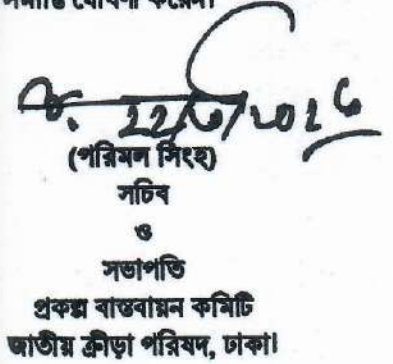 সমাপ্তি ঘোষণা করেন।
(পরিমল সিংহ)
সচিব
ও
সভাপতি
প্রকল্প বাস্তবায়ন কমিটি
জাতীয় ক্রীড়া পরিষদ, ঢাকা।